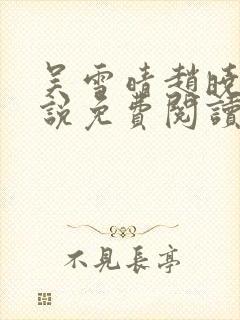 吴雪晴趙曉
說免費閱讀
不見長亭